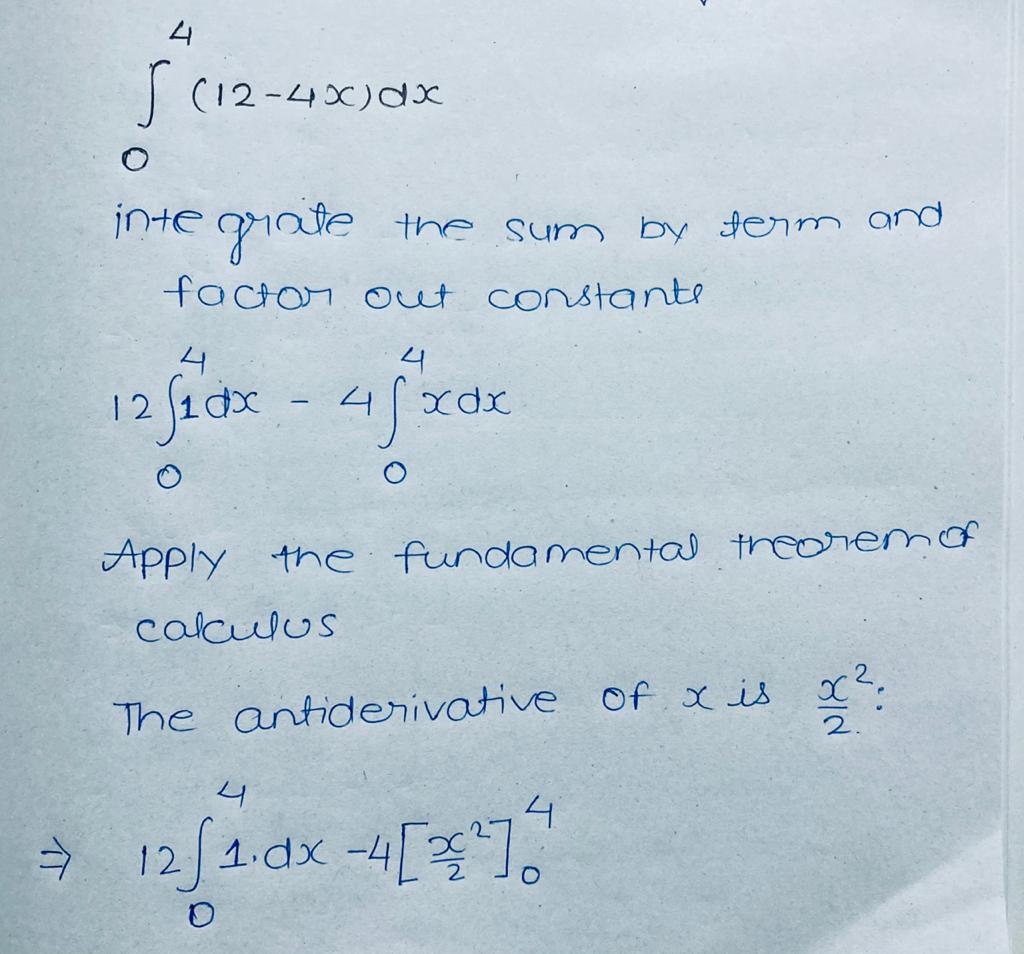 ∫₀⁴ (12-4x)dx
integrate the sum by term and
factor out constants
12 ∫₀⁴ 1 dx - 4 ∫₀⁴ x dx
Apply the fundamental theorem of
calculus
The antiderivative of x is x²/2:
⇒ 12 ∫₀⁴ 1.dx -4[x²/2]₀⁴